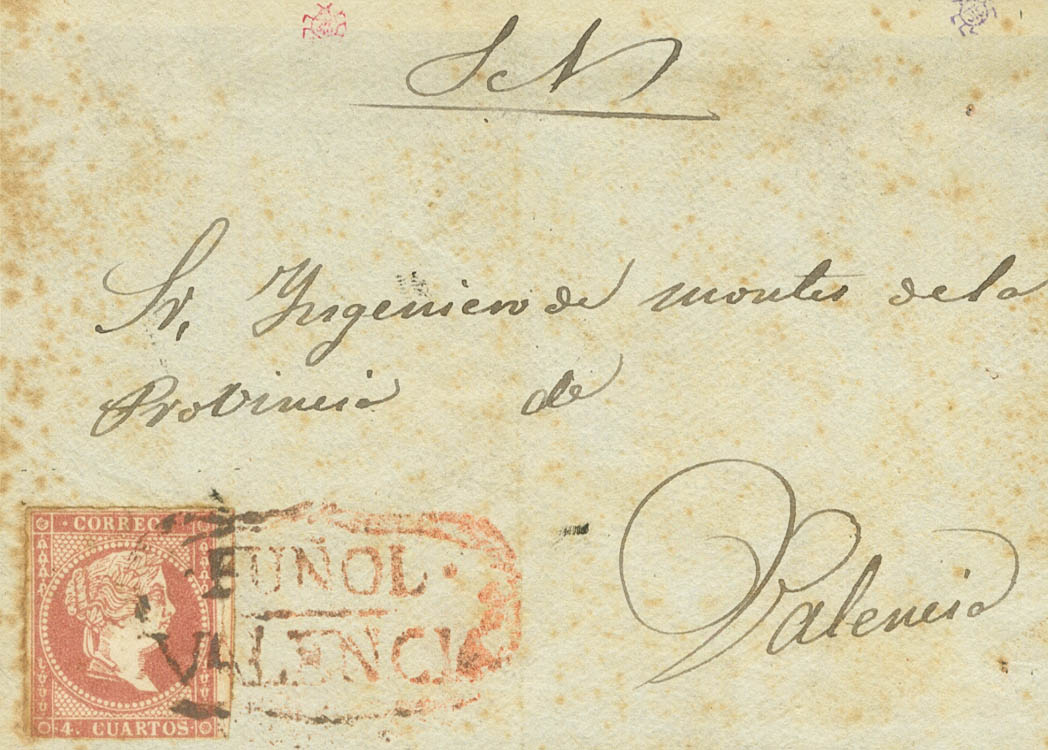 S N
Sr, Yngeniero de montes de la
Provincia de
Valencia
CORREOS
BUÑOL
VALENCIA
4. CUARTOS